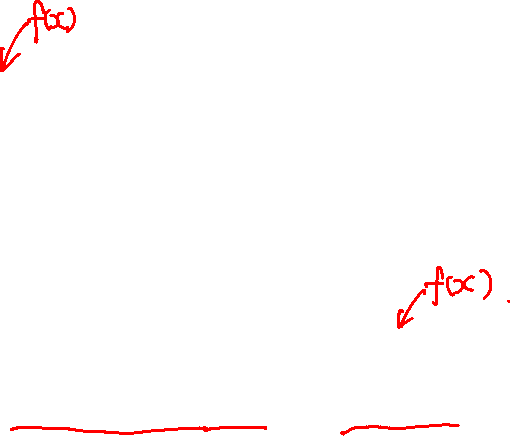 f(x)
f(x)